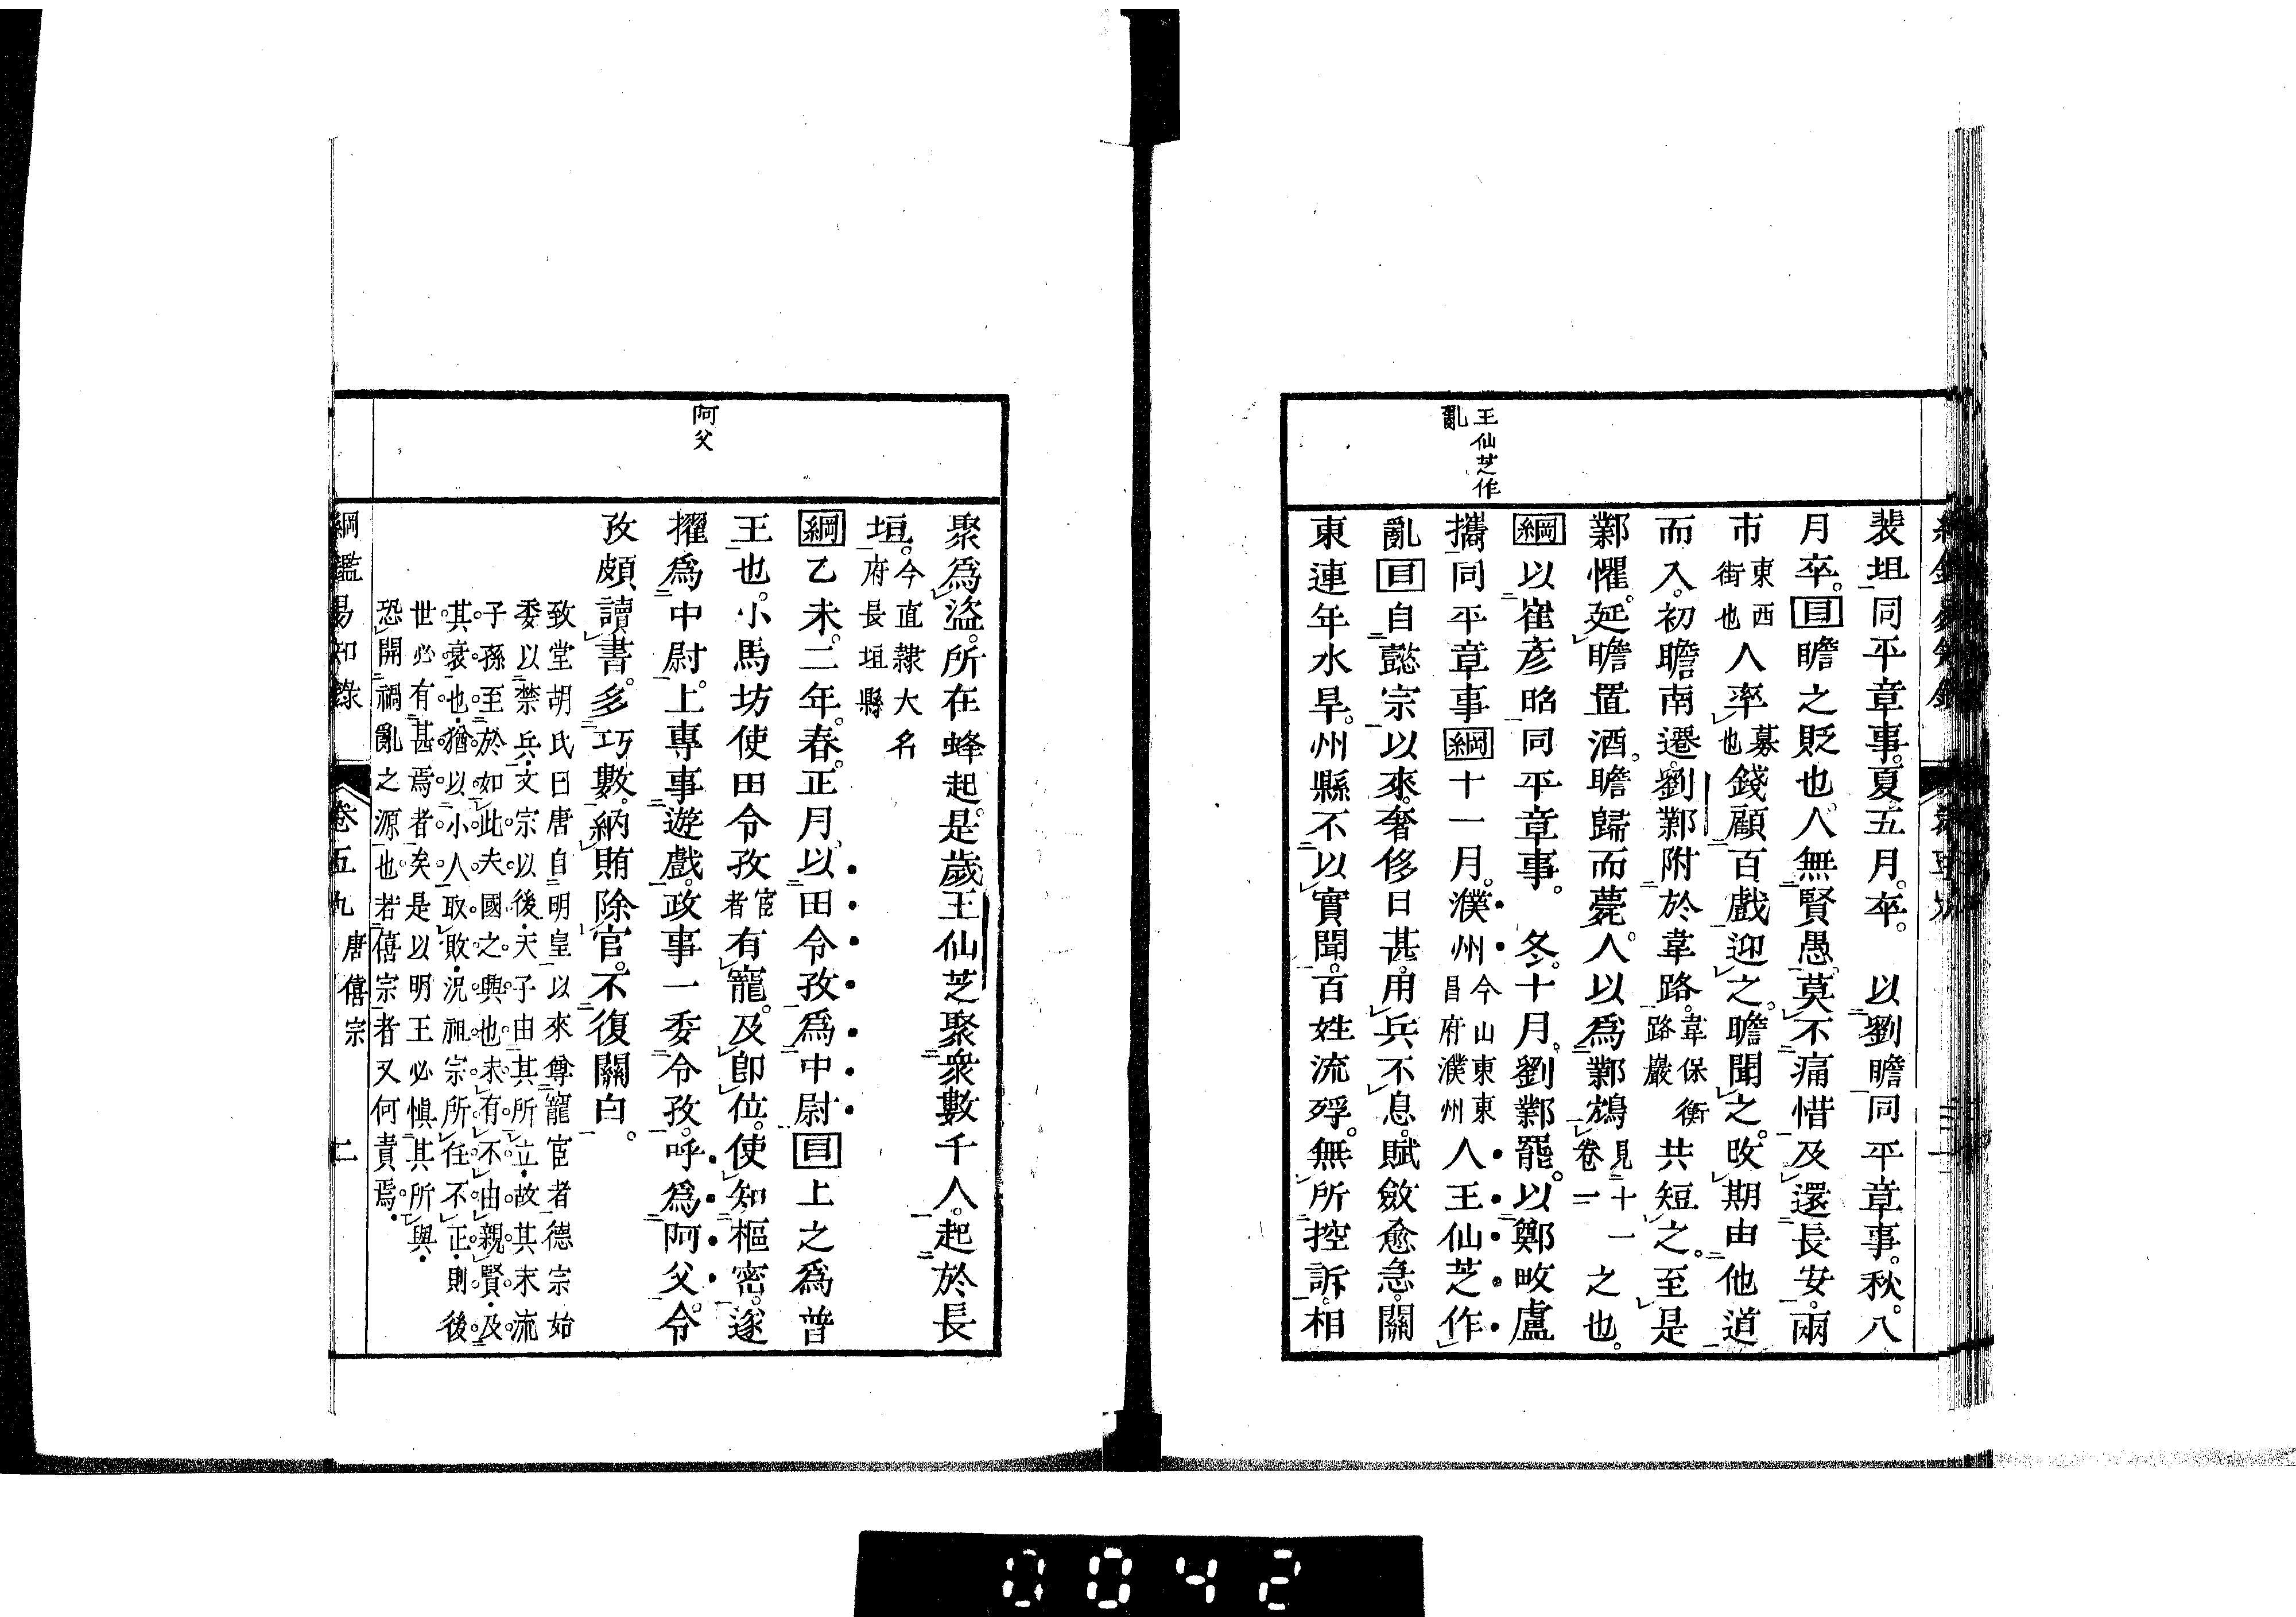 王仙芝作
亂
裴坦同平章事。夏五月。卒。　以劉瞻同平章事。秋。八
月卒。目瞻之貶也。人無賢愚。莫不痛惜。及還長安。兩
市東西街也人率募也錢。顧百戲迎之。瞻聞之。改期由他道
而入。初瞻南遷。劉鄴附於韋路。韋保衡路巖共短之。至是
鄴懼。延瞻置酒。瞻歸而薨。人以為鄴鴆見十一卷一之也。
綱以崔彥昭同平章事。　冬。十月。劉鄴罷。以鄭畋盧
攜同平章事綱十一月。濮州今山東東昌府濮州人王仙芝作
亂目自懿宗以來。奢侈日甚。用兵不息。賦斂愈急。關
東連年水旱。州縣不以實聞。百姓流殍。無所控訴。相
阿父
聚爲盜。所在蜂起。是歲王仙芝聚衆數千人。起於長
垣。今直隸大名府長垣縣
綱乙未。二年。春。正月。以田令孜爲中尉目上之爲普
王也。小馬坊使田令孜宦者有寵。及卽位。使知樞密。遂
擢爲中尉。上專事遊戲。政事一委令孜。呼爲阿父。令
孜頗讀書。多巧數。納賄除官。不復關白。
致堂胡氏曰唐自明皇以來尊寵宦者德宗始
委以禁兵。文宗以後。天子由其所立。故其末流
子孫至於如此。夫國之興也。未有不由親賢。及
其衰也。猶以小人取敗。況祖宗所任不正。則後
世必有甚焉者矣。是以明王必愼其所與。
恐開禍亂之源也。若僖宗者又何責焉。
綱鑑易知錄　卷五九　唐僖宗　二
0042